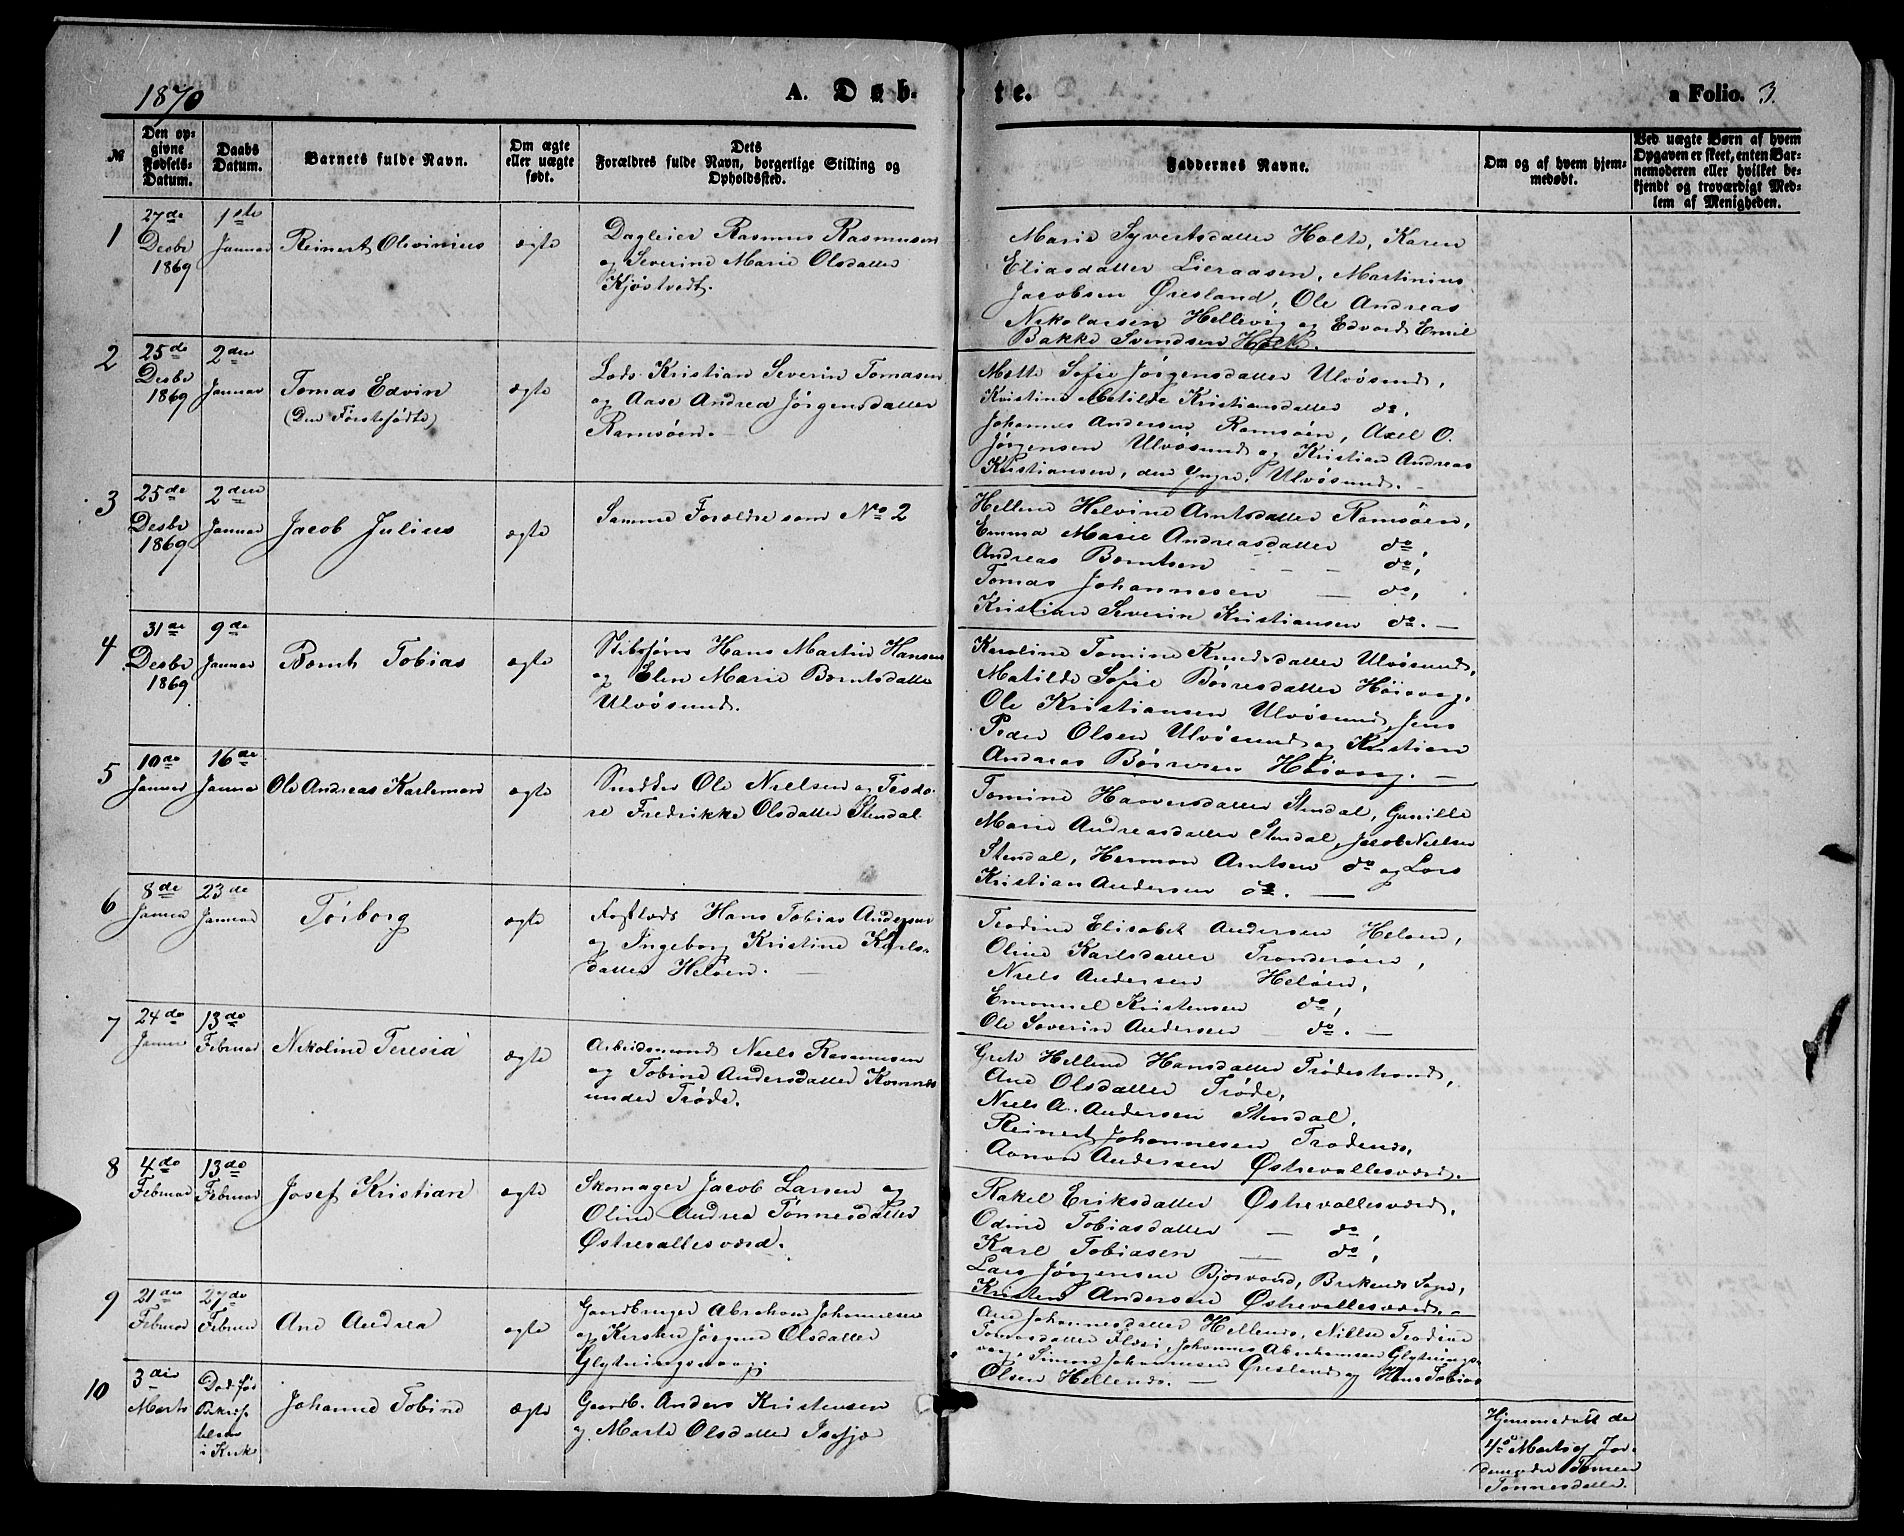 1870
A. Døb-
te.
a Folio. 3.
№
Den op-
givne
Fødsels-
Datum.
Daabs
Datum.
Barnets fulde Navn.
Om ægte
eller uægte
født.
Dets
Forældres fulde Navn, borgerlige Stilling og
Opholdssted.
Faddernes Navne.
Om og af hvem hjem-
medøbt.
Ved uægte Børn af hvem
Opgaven er skeet, enten Bar-
nemoderen eller hvilket be-
kjendt og troværdigt Med-
lem af Menigheden.
1
27de
Desbr
1869
1ste
Januar
Reinert Olevinius
ægte
Dagleier Rasmus Rasmusen
og Severine Marie Olsdatter
Kjøstvedt.
Marie Syvertsdatter Holte, Karen
Eliasdatter Lieraasen, Martinius
Jacobsen Øresland, Ole Andreas
Nikolaisen Hellevig og Edvard Emil
Bakke Svendsen
2
25de
Desbr
1869
2den
Januar
Tomas Edvin
(Den Førstefødte)
ægte
Lods Kristian Severin Tomasen
og Aase Andrea Jørgensdatter
Ramsøen.
Mette Sofie Jørgensdatter Ulvøsund,
Kristine Matilde Kristiansdatter do,
Johannes Andersen Ramsøen, Axel O.
Jørgensen Ulvøsund og Kristian Andreas
Kristiansen, den Yngre, Ulvøsund.
3
25de
Desbr
1869
2den
Januar
Jacob Julius
ægte
Samme Forældre som No 2
Hellene Helvine Arntsdatter Ramsøen,
Emma Marie Andreasdatter do,
Andreas Berntsen - - - do,
Tomas Johannesen — do,
Kristian Severin Kristiansen do. —
4
31de
Desbr
1869
9de
Januar
Bernt Tobias
ægte
Skibsfører Hans Martin Hansen
og Elen Marie Berntsdatter
Ulvøsund.
Karoline Tomine Knudsdatter Ulvøsund,
Matilde Sofie Børresdatter Høivog,
Ole Kristiansen Ulvøsund, Jens
Peder Olsen Ulvøsund og Kristian
Andreas Børresen Høivog. —
5
10de
Januar
16de
Januar
Ole Andreas Karlemon
ægte
Snedker Ole Nielsen og Teodo-
re Fredrikke Olsdatter Stendal
Tomine Haaversdatter Stendal, Gunille
Marie Andreasdatter Stendal, Jacob Nielsen
Stendal, Hermon Arntsen do og Lars
Kristian Andersen do. —
6
8de
Januar
23de
Januar
Torborg
ægte
Fastlods Hans Tobias Andersen
og Ingeborg Kristine Karls-
datter Heløen. —
Teodine Elisabet Andersen Heløen,
Oline Karlsdatter Trondersøen,
Niels Andersen Heløen,
Emonuel Kristensen do,
Ole Soverin Andersen do. —
7
24de
Januar
13de
Februar
Nikoline Teresia
ægte
Arbeidsmand Niels Rasmussen
og Tobine Andersdatter
under Trøde.
Grete Hellene Hansdatter Trødestrand,
Ane Olsdatter Trøde,
Niels A. Andersen Stendal,
Reinert Johannesen Trødenes,
Aanon Andersen Østrevallesværd.
8
4de
Februar
13de
Februar
Josef Kristian
ægte
Skomager Jacob Larsen og
Oline Andrea Tønnesdatter
Østrevallesværd.
Rakel Eriksdatter Østrevallesværd,
Odine Tobiasdatter — do,
Karl Tobiasen — do,
Lars Jørgensen Bjorvand, Birkenes Sogn,
Kristen Andersen Østrevallesværd. —
9
21de
Februar
27de
Februar
Ane Andrea
ægte
Gaardbruger Abraham Johannesen
og Kirsten Jørgine Olsdatter
Glytningsvaag.
Ane Johannesdatter Hellenes, Nille Teodine
Tomasdatter Fløri, Johannes Abrahamsen Glytnings-
vaag, Simon Johannesen Øresland og Hans Tobias
Olsen Hellenes. —
10
3die
Marts
Død før
Bekræf-
telsen
i Kirk
Johanne Tobine
ægte
Gaardb. Anders Kristensen
og Marte Olsdatter Isefjæ
Hjemmedøbt de
4de Marts af Jor-
demoder Tomine
Tønnesdatter.